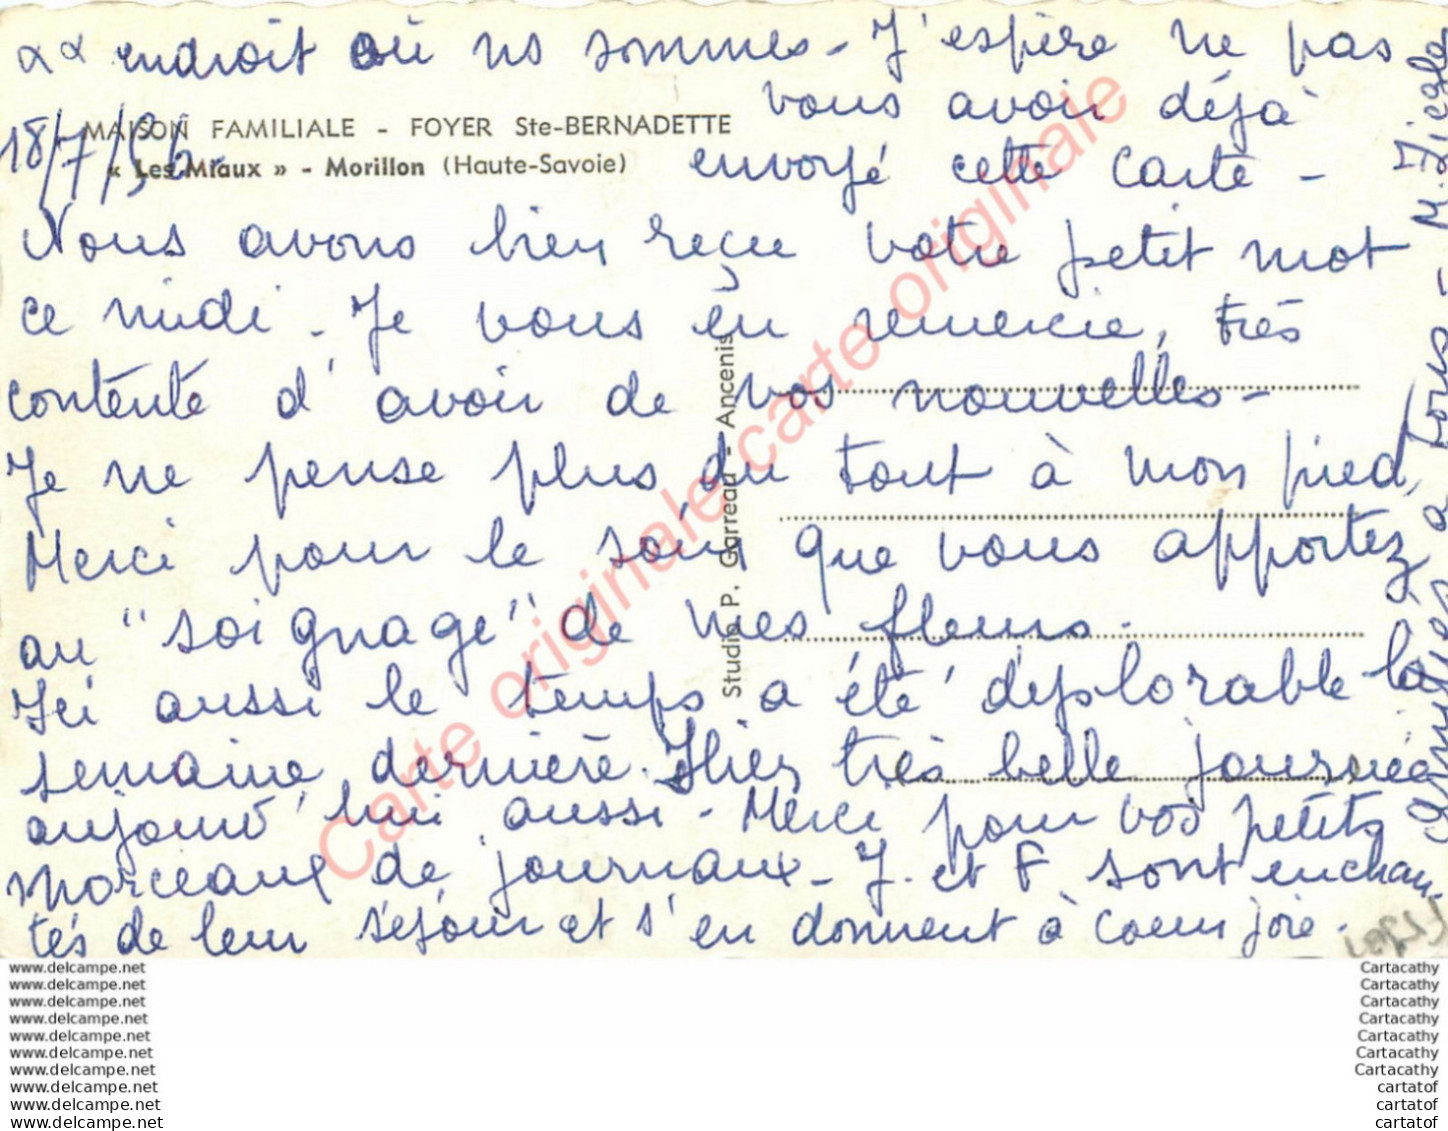 αα endroit où ns sommes - J'espère ne pas
vous avoir déjà
18/7/
MAISON FAMILIALE - FOYER Ste-BERNADETTE
« Les Miaux » - Morillon (Haute-Savoie)
envoyé cette carte -
Nous avons bien reçu votre petit mot
ce midi - Je vous en remercie, très
contente d'avoir de vos nouvelles -
Je ne pense plus du tout à mon pied,
Merci pour le soin que vous apportez
au "soignage" de mes fleurs.
Ici aussi le temps a été déplorable la
semaine dernière. Hier très belle journée
aujourd'hui aussi - Merci pour vos petits
morceaux de journaux - J. et F. sont enchan-
tés de leur séjour et s'en donnent à coeur joie.
Amitiés à tous - M.
Studio P. Garreau - Ancenis
Carte originale carte originale
www.delcampe.net
www.delcampe.net
www.delcampe.net
www.delcampe.net
www.delcampe.net
www.delcampe.net
www.delcampe.net
www.delcampe.net
www.delcampe.net
www.delcampe.net
Cartacathy
Cartacathy
Cartacathy
Cartacathy
Cartacathy
Cartacathy
Cartacathy
cartatof
cartatof
cartatof